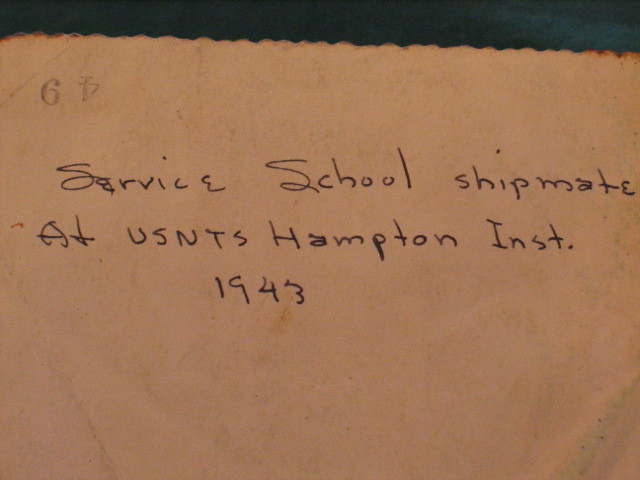 49
Service School shipmate
At USNTS Hampton Inst.
1943